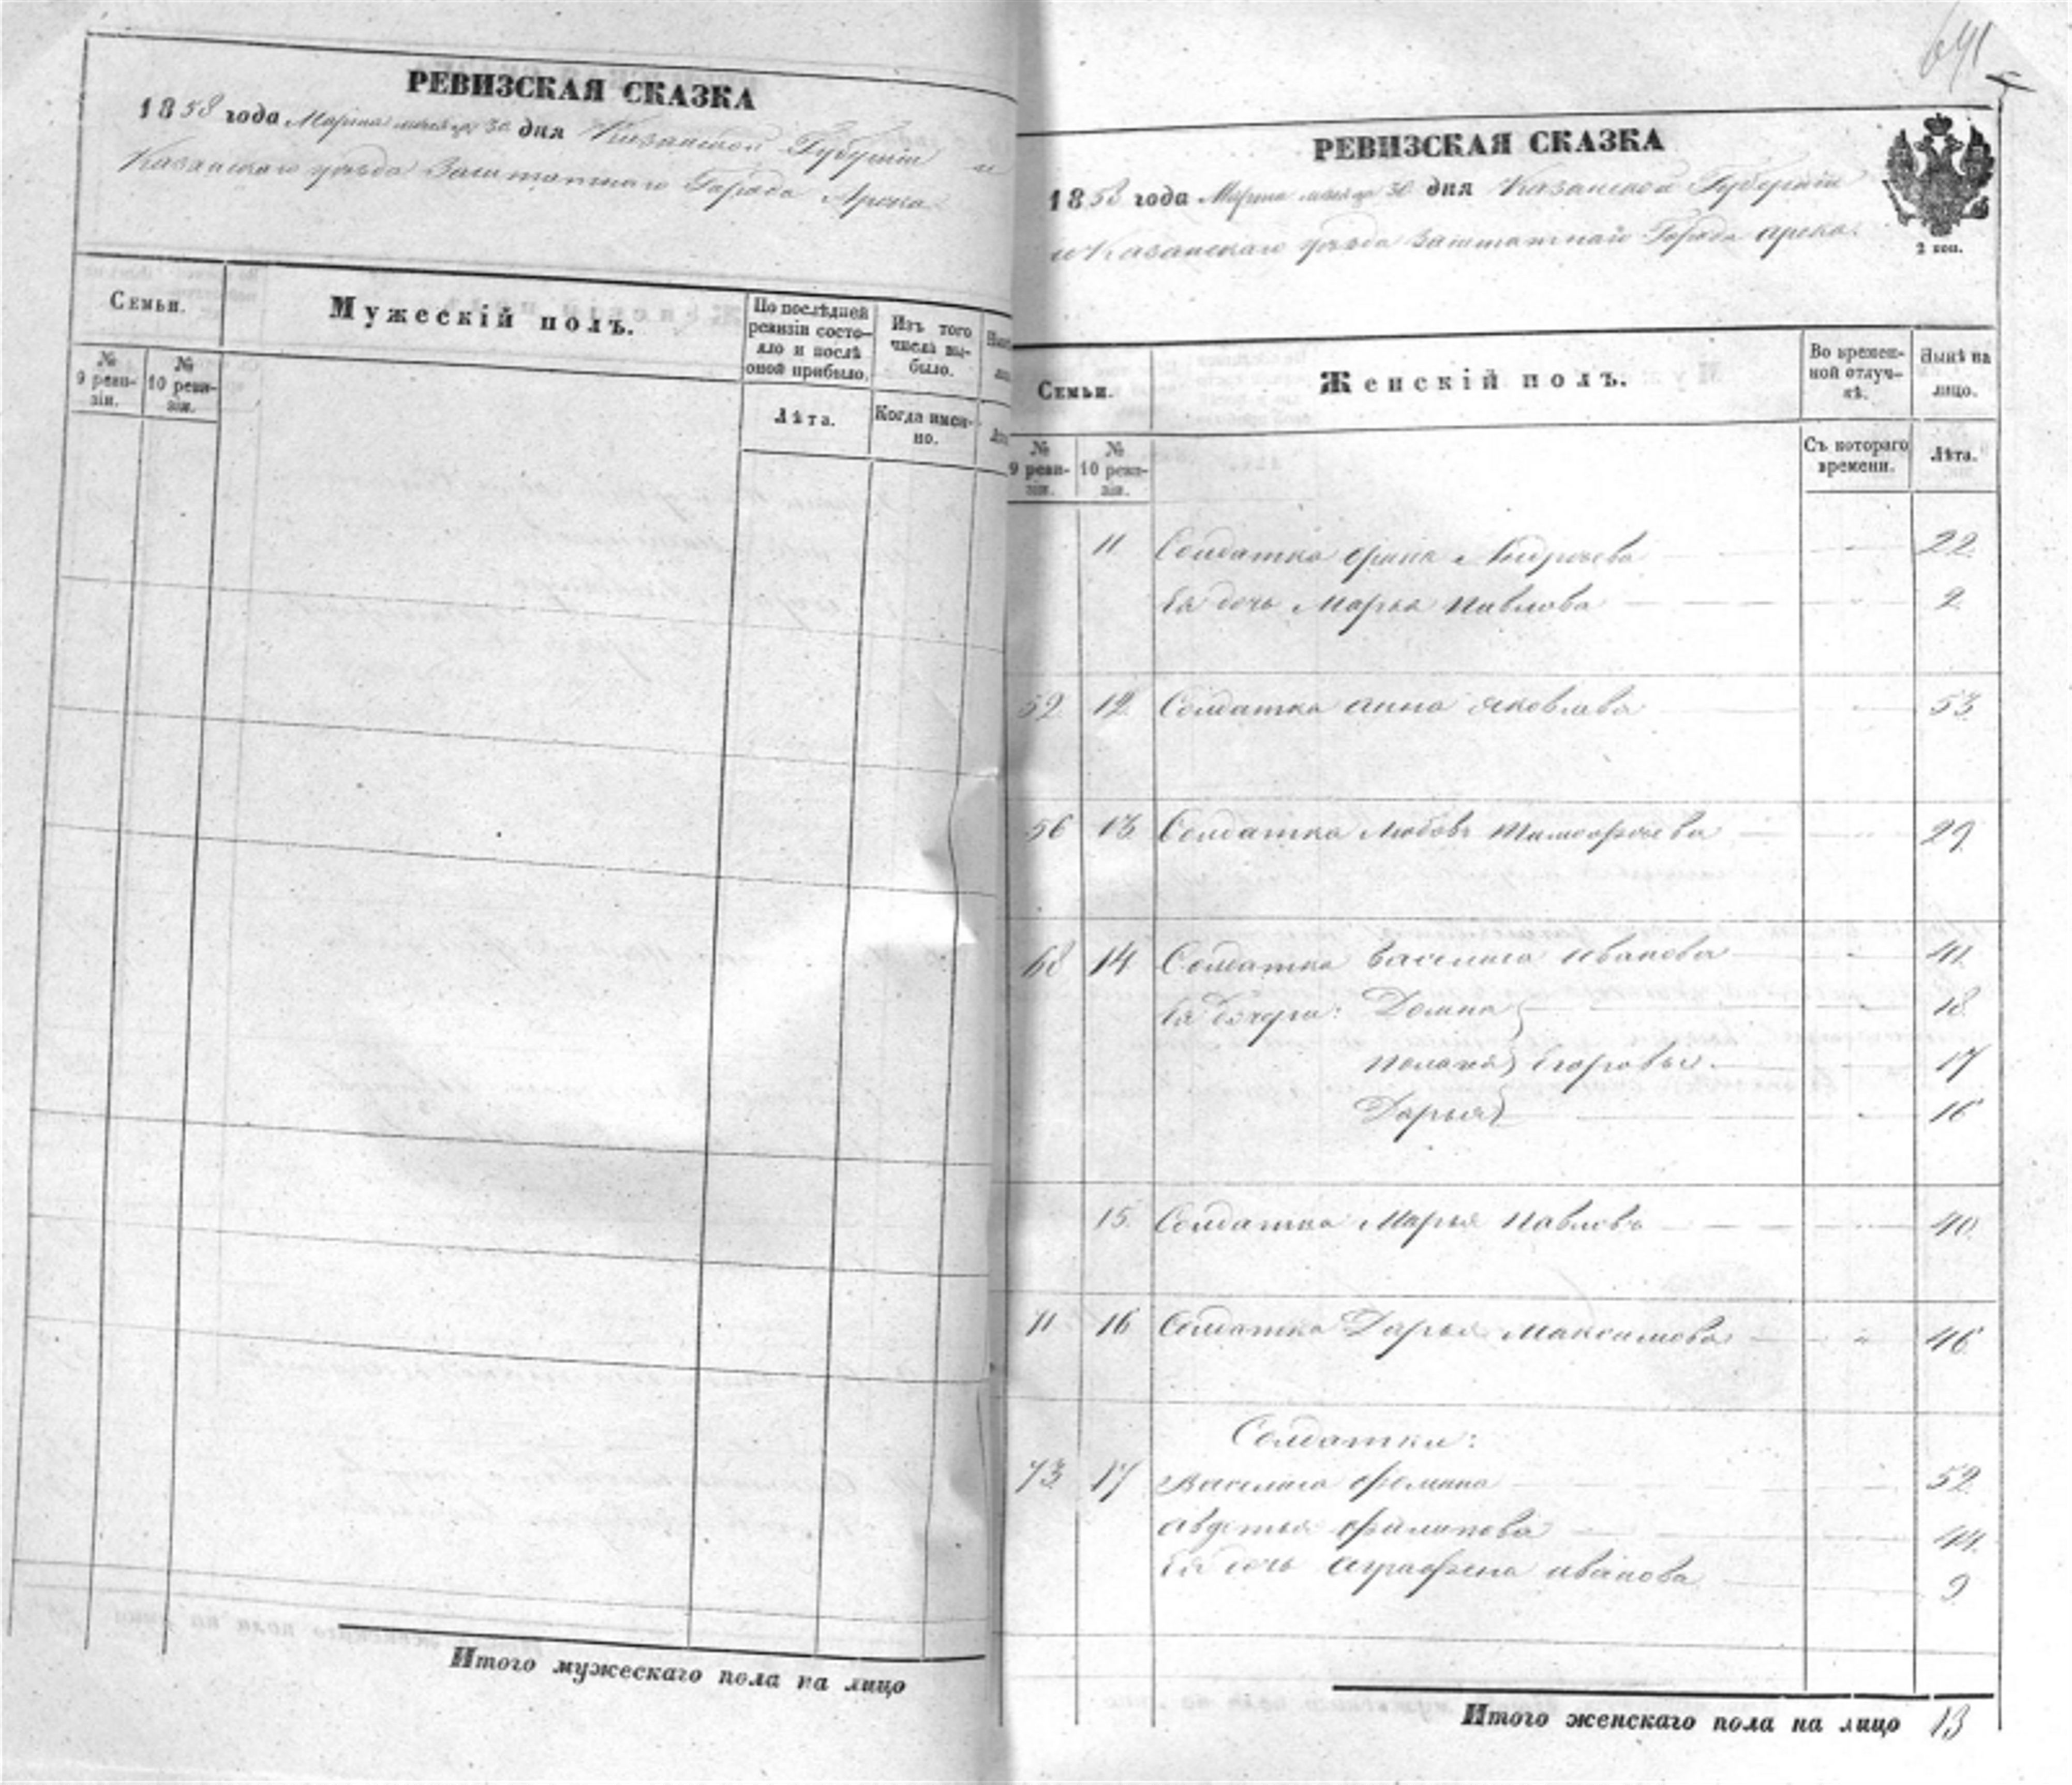 РЕВИЗСКАЯ СКАЗКА
1858 года Марта месяца 30 дня Казанской Губернiи и
Казанскаго уѣзда Заштатнаго Города Арска
Семьи.
Мужескій полъ.
По послѣдней ревизіи состояло и послѣ оной прибыло.
Изъ того числа выбыло.
№ 9 ревизіи.
№ 10 ревизіи.
Лѣта.
Когда именно.
Итого мужескаго пола на лицо
641
РЕВИЗСКАЯ СКАЗКА
1858 года Марта месяца 30 дня Казанской Губернiи
и Казанскаго уѣзда Заштатнаго Города Арска.
2 коп.
Семьи.
Женскій полъ.
Во временной отлучкѣ.
Нынѣ на лицо.
№ 9 ревизіи.
№ 10 ревизіи.
Съ котораго времени.
Лѣта.
11 Солдатка Арина Андрѣева 22
Ея дочь Марья Павлова 2
52 12 Солдатка Анна Яковлева 53
56 13 Солдатка Любовь Тимофѣева 29
68 14 Солдатка Василиса Иванова 41
Ея дочери: Домна 18
Пелагѣя Егоровы 17
Дарья 16
15 Солдатка Марья Павлова 40
71 16 Солдатка Дарья Максимова 46
Солдатки:
73 17 Василиса Фомина 52
Авдотья Филипова 44
Ея дочь Аграфена Иванова 9
Итого женскаго пола на лицо 13